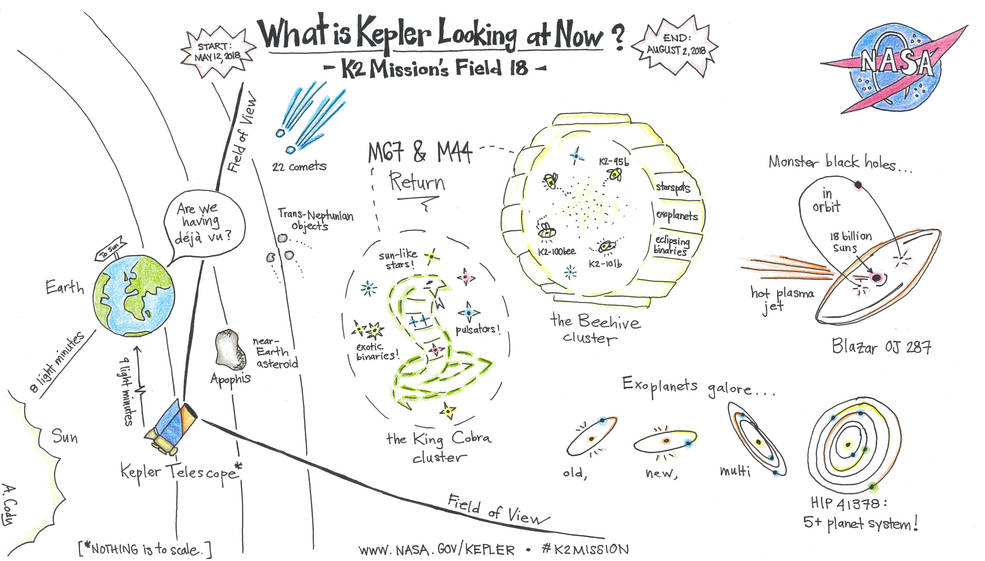 What is Kepler Looking at Now?
- K2 Mission's Field 18 -
START:
MAY 12, 2018
END:
AUGUST 2, 2018
NASA
Field of View
22 comets
Are we
having
déjà vu?
Trans-Neptunian
objects
To Sun
Earth
8 light minutes
9 light minutes
near-
Earth
asteroid
Apophis
Sun
Kepler Telescope*
A. Cody
[*NOTHING is to scale.]
Field of View
M67 & M44
Return
sun-like
stars!
pulsators!
exotic
binaries!
the King Cobra
cluster
K2-95b
K2-100bee
K2-101b
starspots
exoplanets
eclipsing
binaries
the Beehive
cluster
Monster black holes...
in
orbit
18 billion
suns
hot plasma
jet
Blazar OJ 287
Exoplanets galore...
old,
new,
multi
HIP 41378:
5+ planet system!
WWW.NASA.GOV/KEPLER • #K2MISSION